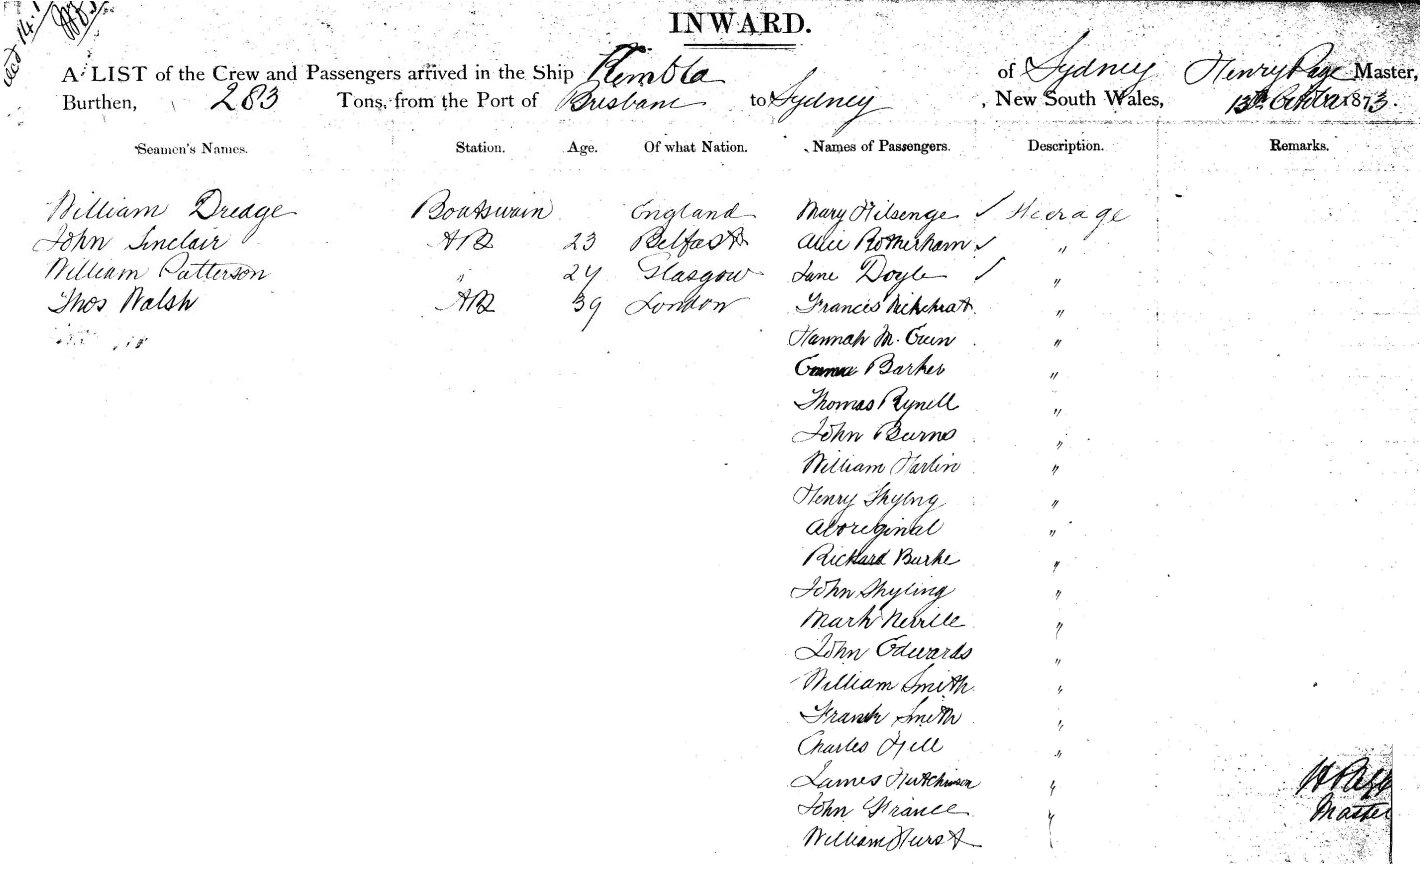 INWARD.
A LIST of the Crew and Passengers arrived in the Ship Kembla of Sydney Henry Page Master,
Burthen, 283 Tons, from the Port of Brisbane to Sydney, New South Wales, 13th October 1873.
Seamen's Names. Station. Age. Of what Nation. Names of Passengers. Description. Remarks.
William Dredge Boatswain England Mary Hilsenge ✓ Steerage
John Sinclair AB 23 Belfast Alice Rotherham ✓ "
William Patterson " 24 Glasgow Jane Doyle ✓ "
Thos Walsh AB 39 London Frances "
Hannah "
Emma Barker "
Thomas Rynell "
John Burns "
William "
Henry "
Aboriginal "
Richard Burke "
John "
Mark "
John Edwards "
William Smith "
Frank Smith "
Charles Hill "
James Hutchinson "
John France "
William Hurst
H Page
Master